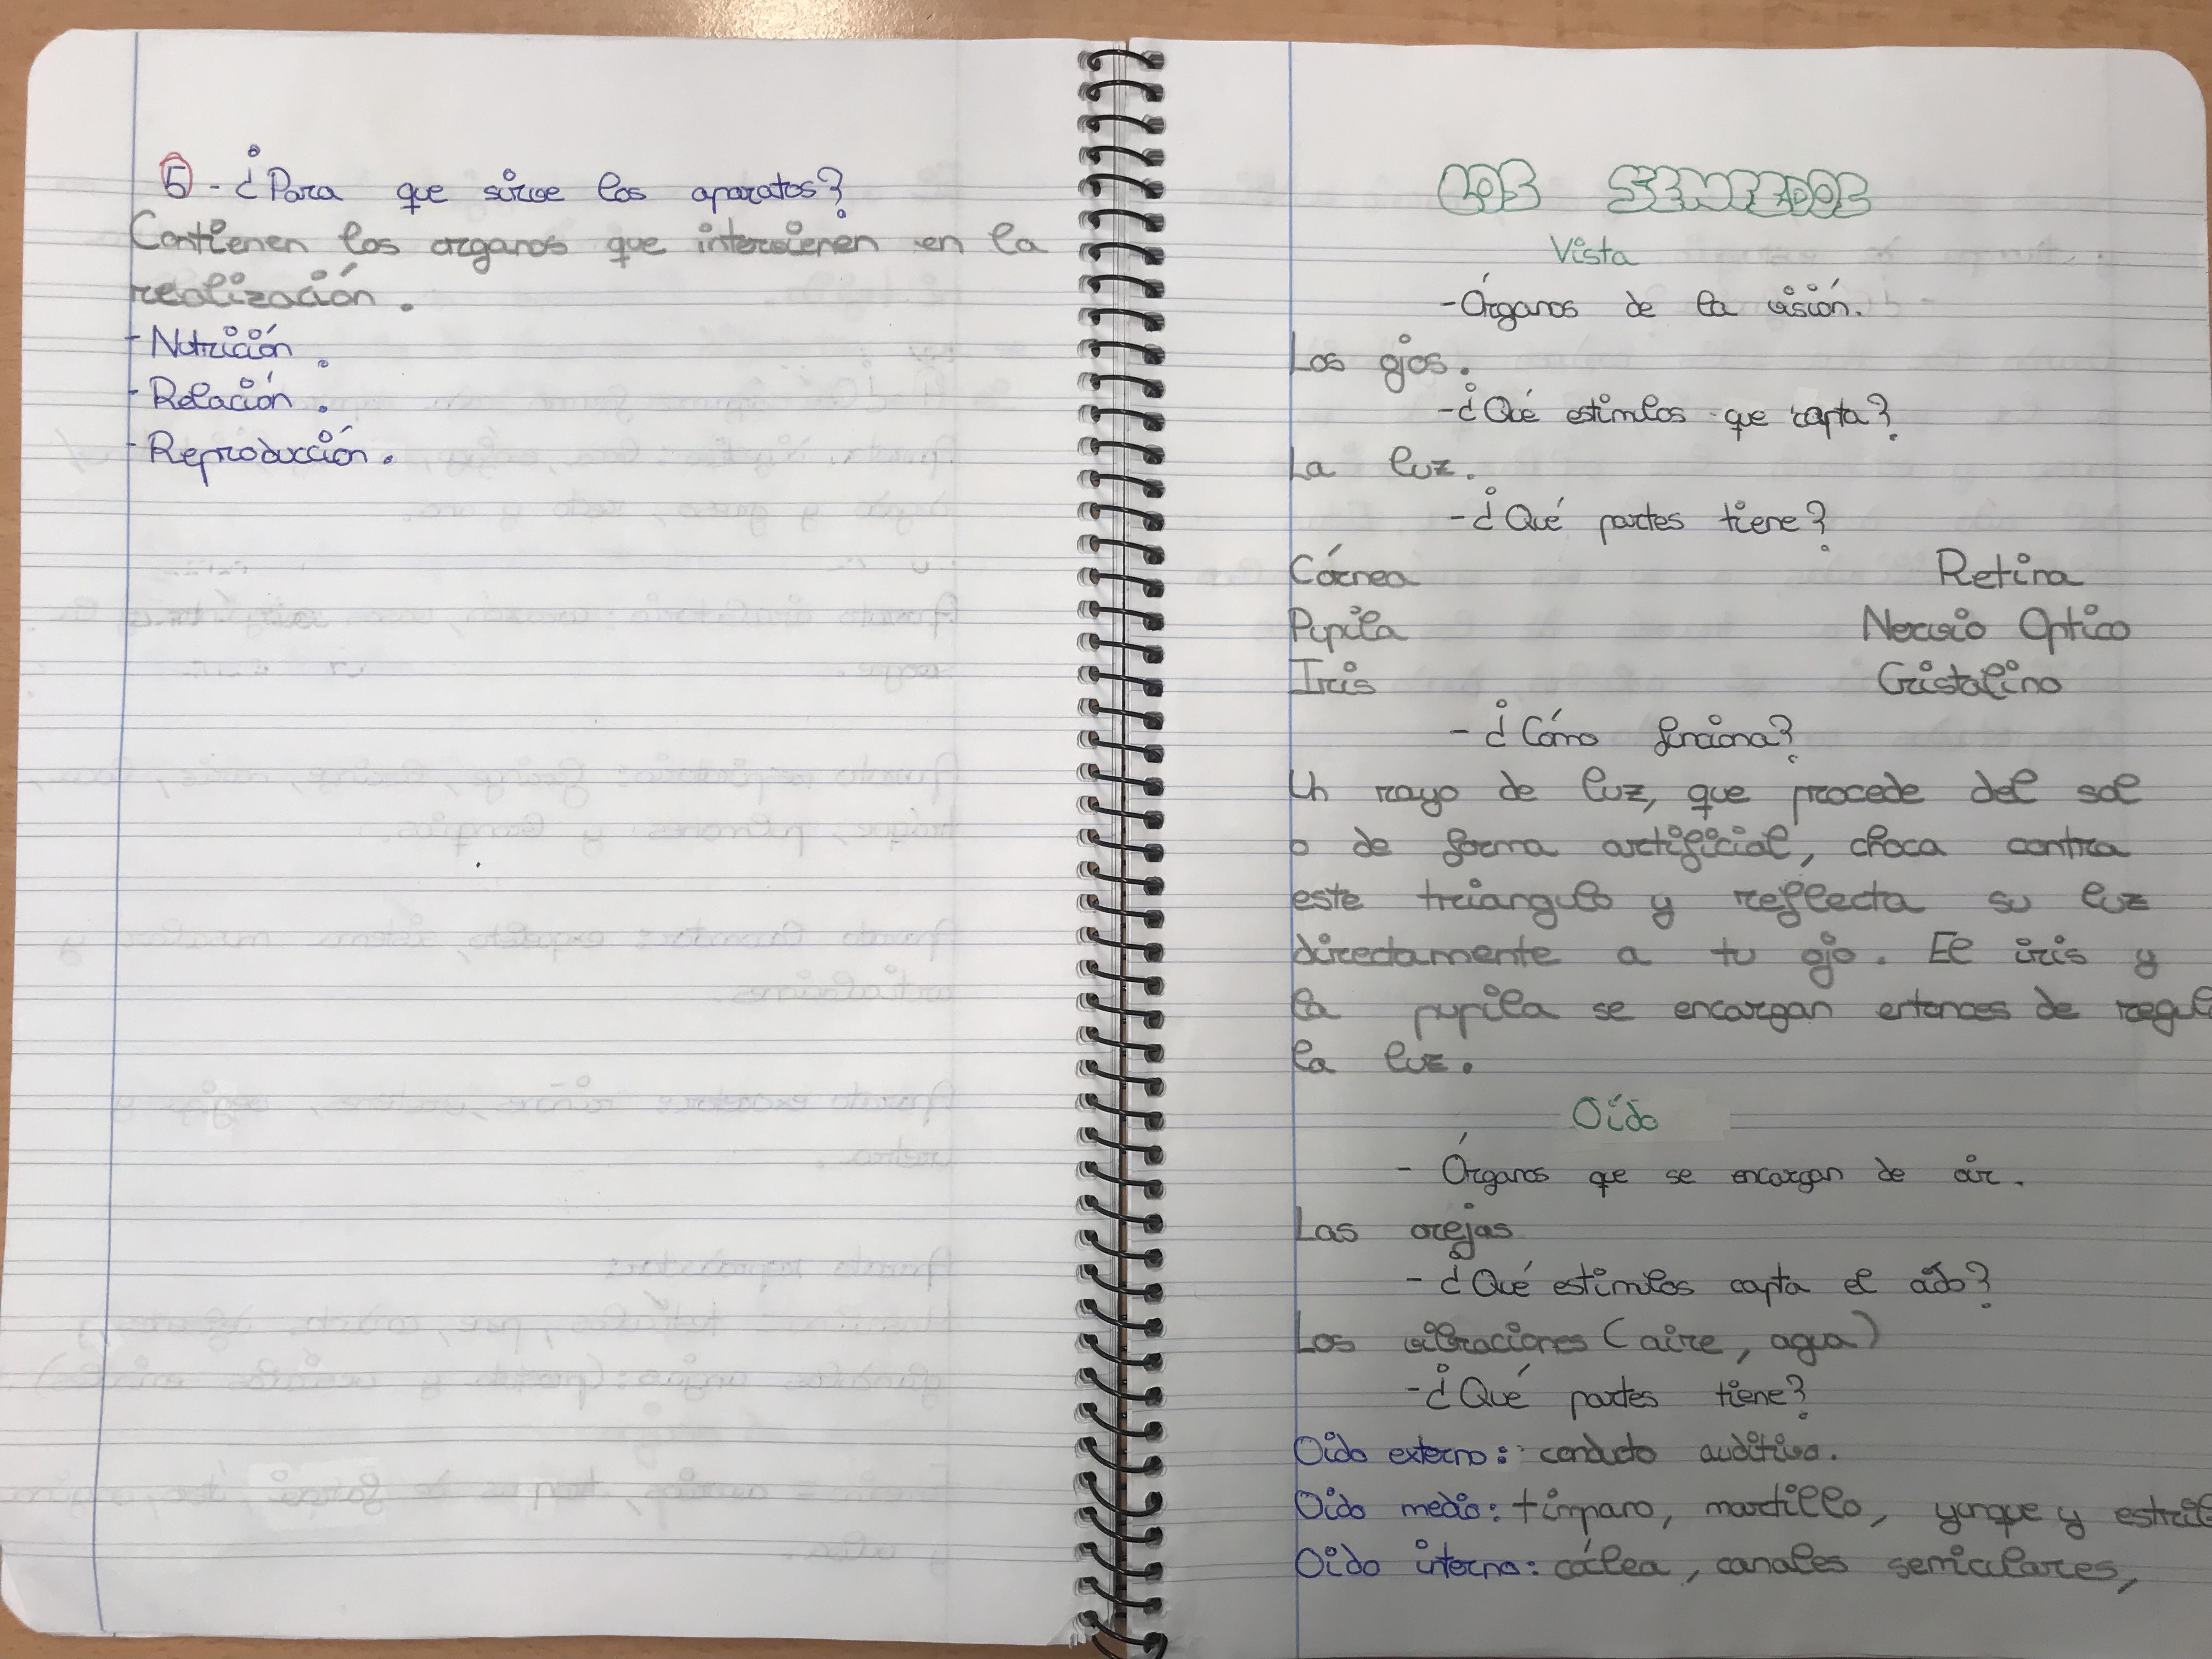 5 - ¿Para que sirve los aparatos?
Contienen los organos que intervienen en la
realización.
- Nutrición.
- Relación.
- Reproducción.
LOS SENTIDOS
Vista
- Órganos de la visión.
Los ojos.
- ¿Qué estimulos que capta?
La luz.
- ¿Qué partes tiene?
Córnea Retina
Pupila Nervio Optico
Iris Cristalino
- ¿Cómo funciona?
Un rayo de luz, que procede del sol
o de forma artificial, choca contra
este triangulo y reflecta su luz
directamente a tu ojo. El iris y
la pupila se encargan entonces de regul
la luz.
Oído
- Órganos que se encargan de oir.
Las orejas
- ¿Qué estimulos capta el oído?
Los vibraciones (aire, agua)
- ¿Qué partes tiene?
Oido externo: conducto auditivo.
Oido medio: timparo, martillo, yunque y estrib
Oido interno: cóclea, canales semiculares,